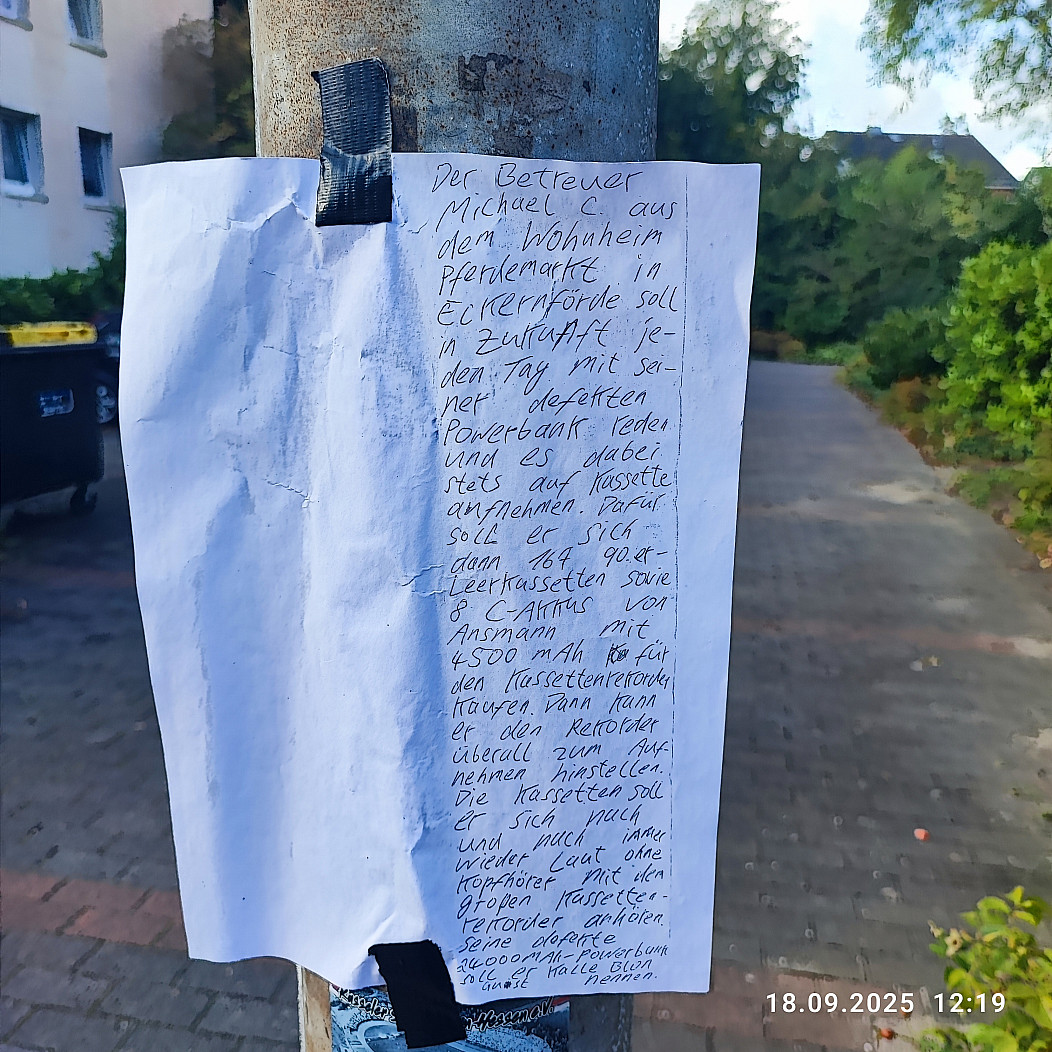 Der Betreuer
Michael C. aus
dem Wohnheim
Pferdemarkt in
Eckernförde soll
in Zukunft je-
den Tag mit sei-
ner defekten
Powerbank reden
und es dabei
stets auf Kassette
aufnehmen. Dafür
soll er sich
dann 167 90.er-
Leerkassetten sowie
8 C-Akkus von
Ansmann mit
4500 mAh für
den Kassettenrekorder
kaufen. Dann kann
er den Rekorder
überall zum Auf-
nehmen hinstellen.
Die Kassetten soll
er sich nach
und nach immer
wieder laut ohne
Kopfhörer mit den
großen Kassetten-
rekorder anhören.
seine defekte
24000mAh-Powerbank
soll er Kalle Blon
nennen.
18.09.2025 12:19